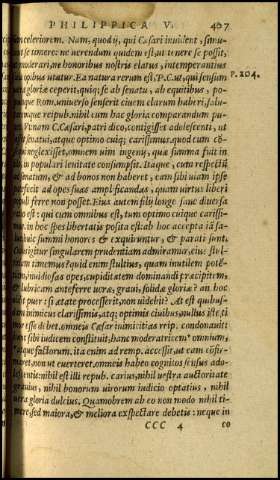 PHILIPPICA V. 407
celeriorem. Nam, quod ij, qui Cæsari inuident, simu-
se timere: ne uerendum quidem est, ut tenere se possit,
moderari, ne honoribus nostris elatus, intemperantius
opibus utatur. Ea natura rerum est, P.C. ut, qui sensum
gloriæ ceperit, quiq; se ab senatu, ab equitibus, po-
Rom. uniuerso senserit ciuem clarum haberi, salu-
reipub. nihil cum hac gloria comparandum pu-
C. Cæsari, patri dico, contigisset adolescenti, ut
senatui, atque optimo cuiq; carissimus. quod cum
neglexisset, omnem uim ingenij, quæ summa fuit in
in populari leuitate consumpsit. Itaque, cum respectum
& ad bonos non haberet, eam sibi uiam ipse
ad opes suas amplificandas, quam uirtus liberi
ferre non posset. Eius autem filij longe
est: qui cum omnibus est, tum optimo cuique carissi-
in hoc spes libertatis posita est: ab hoc accepta iā sa-
huic summi honores & exquiruntur, & parati sunt.
igitur singularem prudentiam admiramur, eius
timemus? quid enim stultius, quam inutilem poten-
inuidiosas opes, cupiditatem dominandi præcipitem,
& lubricam anteferre ueræ, graui, solidæ gloriæ? an hoc
puer: si ætate processerit, non uidebit? At est quibus-
inimicus clarissimis, atq; optimis ciuibus. nullus iste
esse debet. omneis Cæsar inimicitias reip. condonauit
sibi iudicem constituit, hanc moderatricem omnium,
atque factorum. ita enim ad remp. accessit, ut eam
non ut euerteret. omneis habeo cognitos sensus ado-
nihil est illi repub. carius, nihil uestra auctoritate
grauius, nihil bonorum uirorum iudicio optatius, nihil
uera gloria dulcius. Quamobrem ab eo non modo nihil ti-
sed maiora, & meliora exspectare debetis: neque in
CCC 4 eo
P. 204.